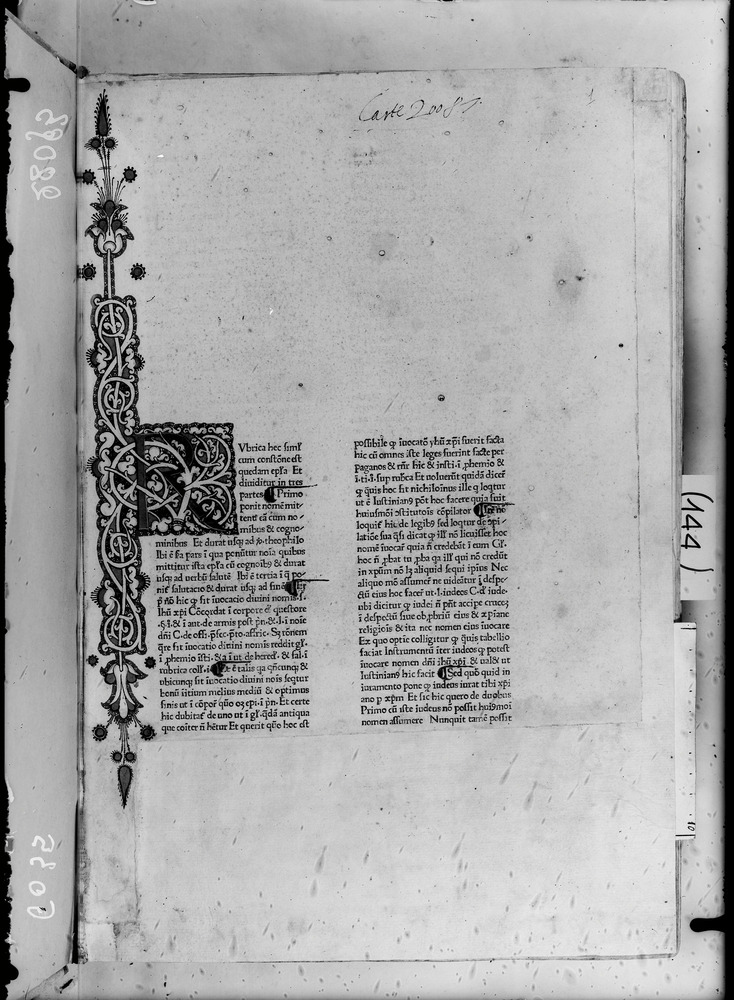 Carte 2008
1
28095
6035
(144)
10
RVbrica hec simł
cum constōne est
quedam epľa Et
diuiditur in tres
partes Primo
porit nomē mit-
tent' eā cum no-
mibus & cogno-
minibus Et durat usq; ad theophilo
Ibi ē sa pars i qua penūtur noīa quibus
mittitur ista epľa cū cognoībꝰ & durat
usq; ad uerbū salutē Ibi ē tertia i q̄ po-
nit' salutacio & durat usq; ad finē
p nō hic q fit iuocacio diuini nomīs
Ihū xpi Cōcordat i corpore questore
dñi C. de offi. p̄fec. p̄to. affric. Sꝫ rōnem
q̄re fit iuocatio diuini nomīs reddit gl.
i phemio isti. & a i ut. de hered'. & fal. i
rubrica coll. i Et ē talis qa cunq; &
ubicunq; fit iuocatio diuini noīs segtur
bonū iitium melius mediū & optimus
finis ut i Et certe
hic dubitat' de uno ut i gl. q̄dā antiqua
que coīter ñ hētur Et querit q̄o hoc est
possibile q iuocatō yhū xp̄i fuerit facta
hic cū omnes iste leges fuerint facte per
paganos & hic & insti. i phemio &
i. ti. i. sup rubca Et uoluerūt quidā dicer'
q quis hoc fit nichiloinus ille q loqtur
ut ē Iustinianꝰ pōt hoc facere quia fuit
huiusmōi cōpilator
loquit' hic de legibꝰ sed loqtur de
latiōe sua qsi dicat q ill' nō licuisset hoc
nomē iuocar' quia ñ credebāt i eum Gl.
hoc ñ pbat tu pba qa ill' qui nō credūt
in xpum nō lꝫ aliquid sequi ipius Nec
aliquo mō assumer' ne uideatur i despe-
ctū eius hoc facer' ut. l. iudeos C. d' iude.
ubi dicitur q iudei ñ pñt accipe cruceꝫ
i despectū siue obpbriū eius & xpiane
religiōis & ita nec nomen eius iuocare
Ex quo optie colligitur q quis tabellio
faciat Instrumentū iter iudeos q potest
iuocare nomen dñi ihū xpi & ualet ut
Iustinianꝰ hic facit Sed quō quid in
iuramento pone q iudeus iurat tibi xpi
ano p xpm Et sic hic quero de duobus
Primo cū iste iudeus nō possit huiꝰmoi
nomen assumere Nunquit tamē possit